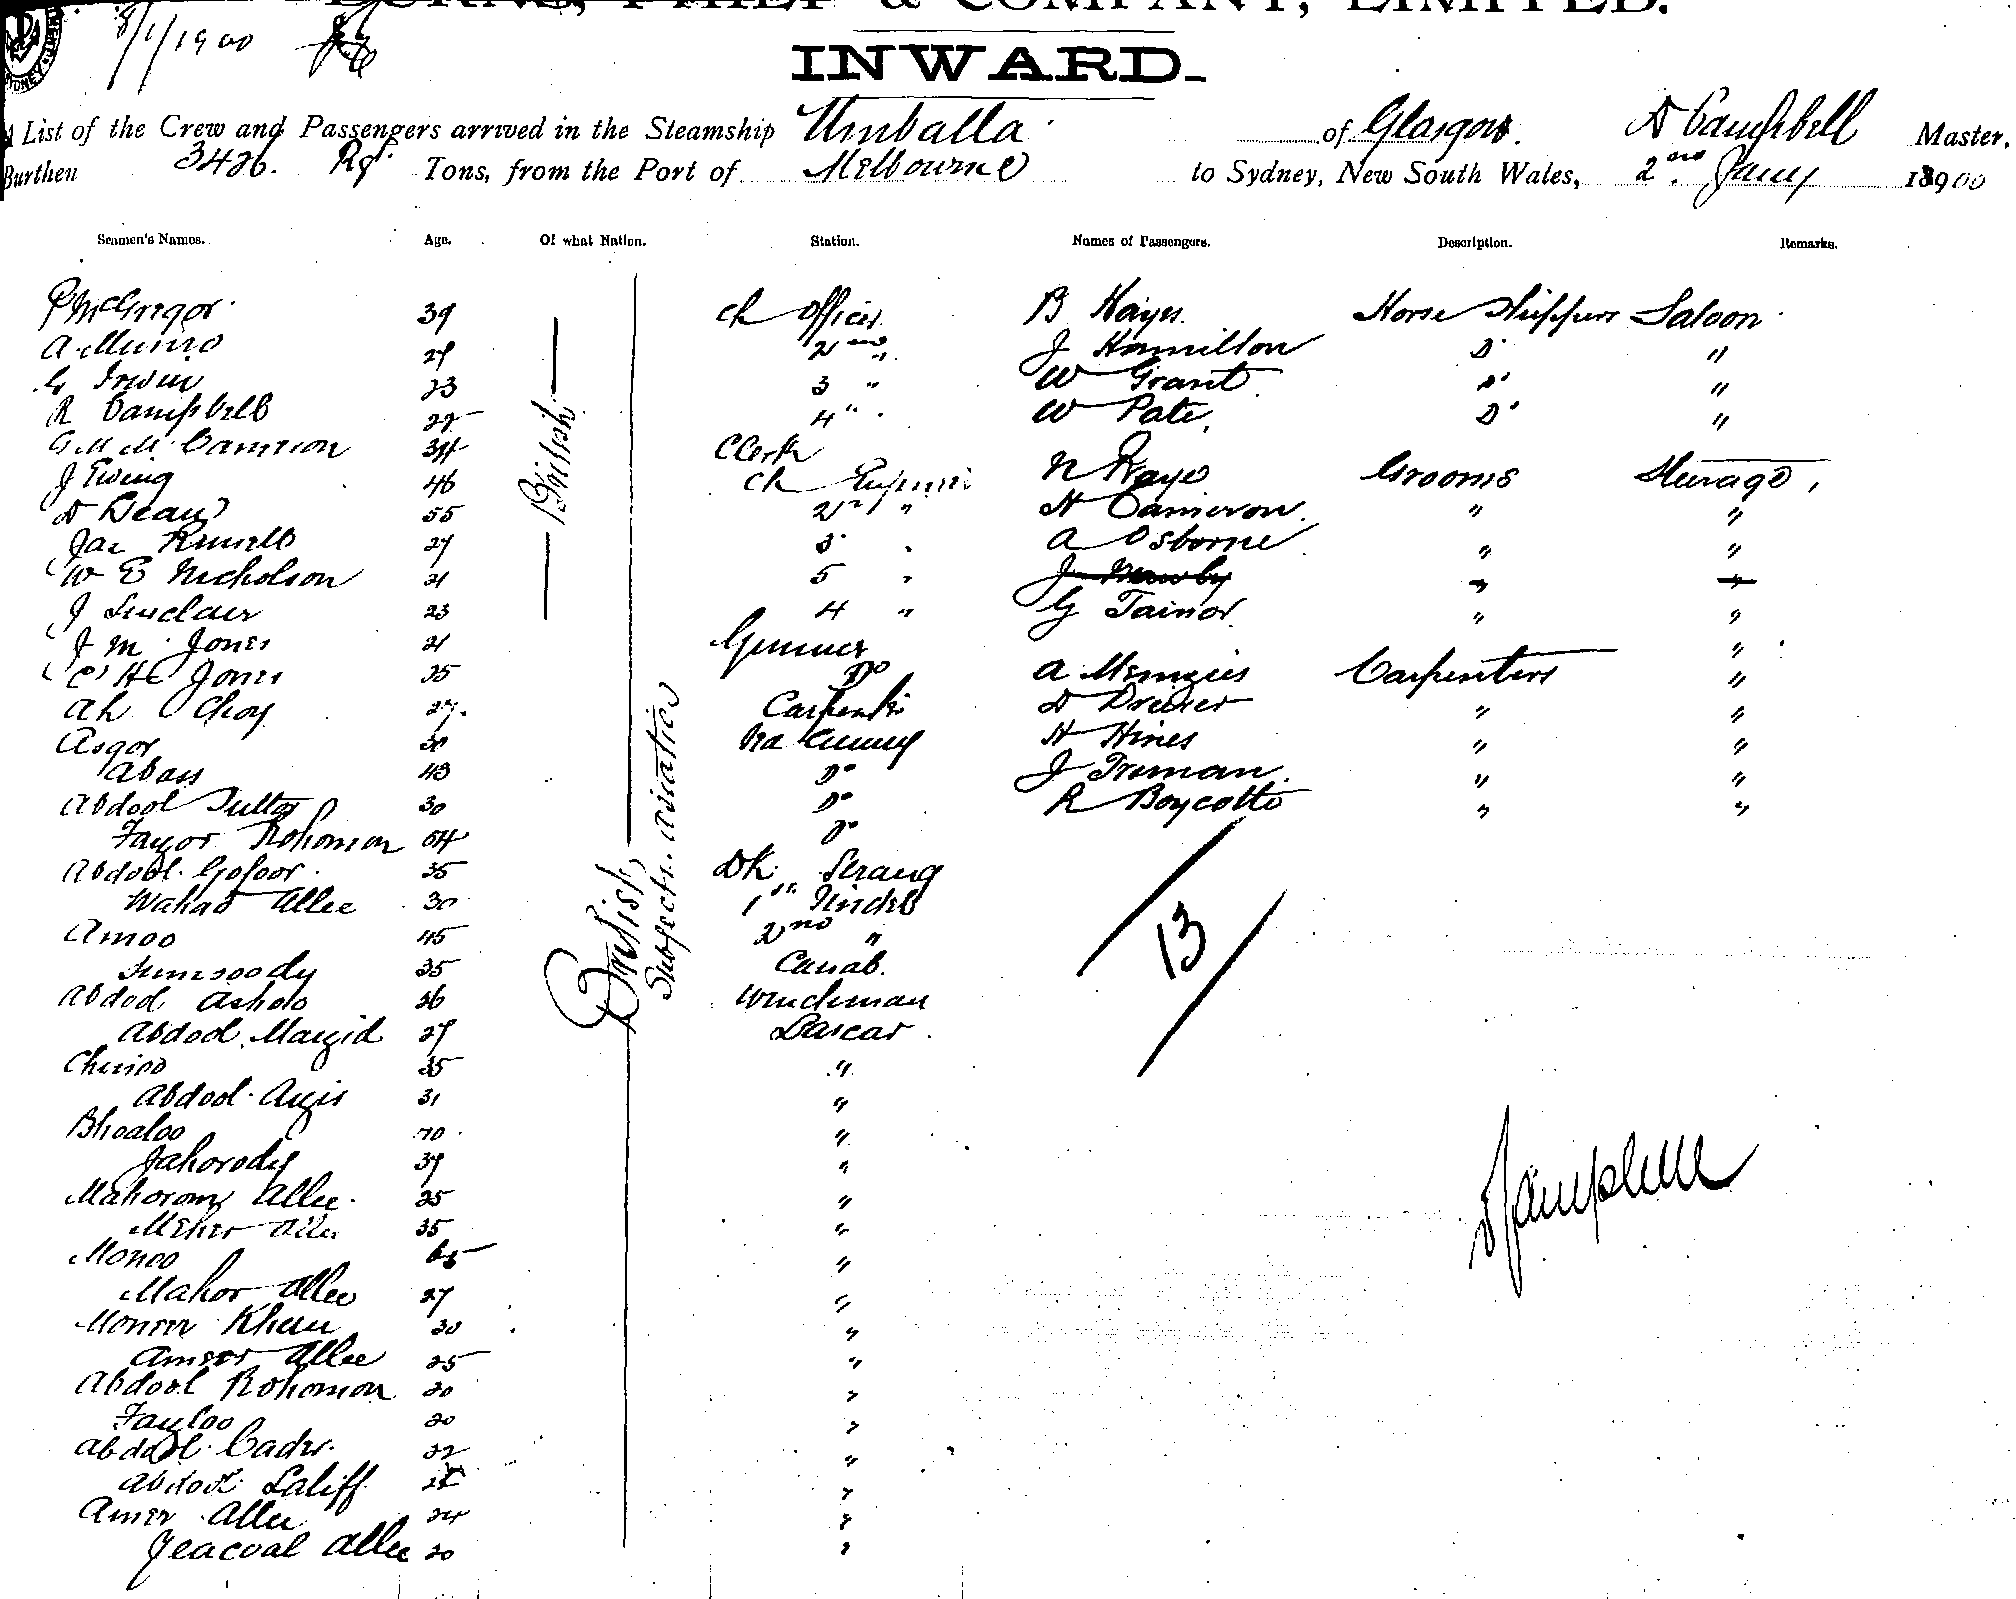 BURNS, PHILP & COMPANY, LIMITED.
8/1/1900
INWARD.
A List of the Crew and Passengers arrived in the Steamship Umballa of Glasgow. D Campbell Master,
Burthen 3426. Rg Tons, from the Port of Melbourne to Sydney, New South Wales, 2nd Jany 1900
Seamen's Names. Age. Of what Nation. Station. Names of Passengers. Description. Remarks.
P McGregor 39 British Ch Officer B Hayes Horse Shippers Saloon
A Munro 29 2nd " J Hamilton Do "
G Irwin 23 3 " W Grant Do "
R Campbell 22 4 " W Pate Do "
G M M Cameron 34 Clerk
J Ewing 46 Ch Engineer N Kaye Grooms Steerage
D Dean 55 2nd " H Cameron " "
Jas Russell 27 3 " A Osborne " "
W E Nicholson 21 5 " J Newby " "
J Sinclair 23 4 " G Tainor " "
J M Jones 21 Gunner "
C H Jones 25 Do A Menzies Carpenters "
Ah Choy 27 Carpenter D Drever " "
Asgor 30 H Hines " "
Abass 43 Do J Truman " "
Abdool 30 Do R Boycott " "
Fayor Rohomon 54 Do
Abdool Gofoor 35 Dk Serang
British Subjects Asiatics
Wahad Allee 30 1st Tindel
Amoo 45 2nd "
Jumsoody 35 Cassab.
Abdool 36 Winchman
Abdool Mazid 29 Lascar
35 "
Abdool Azis 31 "
Bhoaloo 40 "
Jahorody 39 "
Mahorom Allee 25 "
Meher Allee 35 "
Monoo "
Mahor Allee 27 "
Khan 30 "
Amser Allee 25 "
Abdool Rohomon 20 "
Fayloo 20 "
Abdool Cader 32 "
Abdool Latiff "
Amer Allee 24 "
Yeacoal Allee 20 "
13
D Campbell